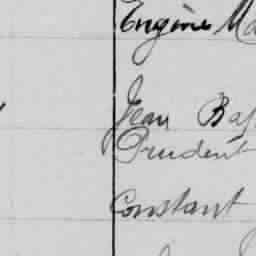 Engine Ma
Jean Bap
Prudent
Constant